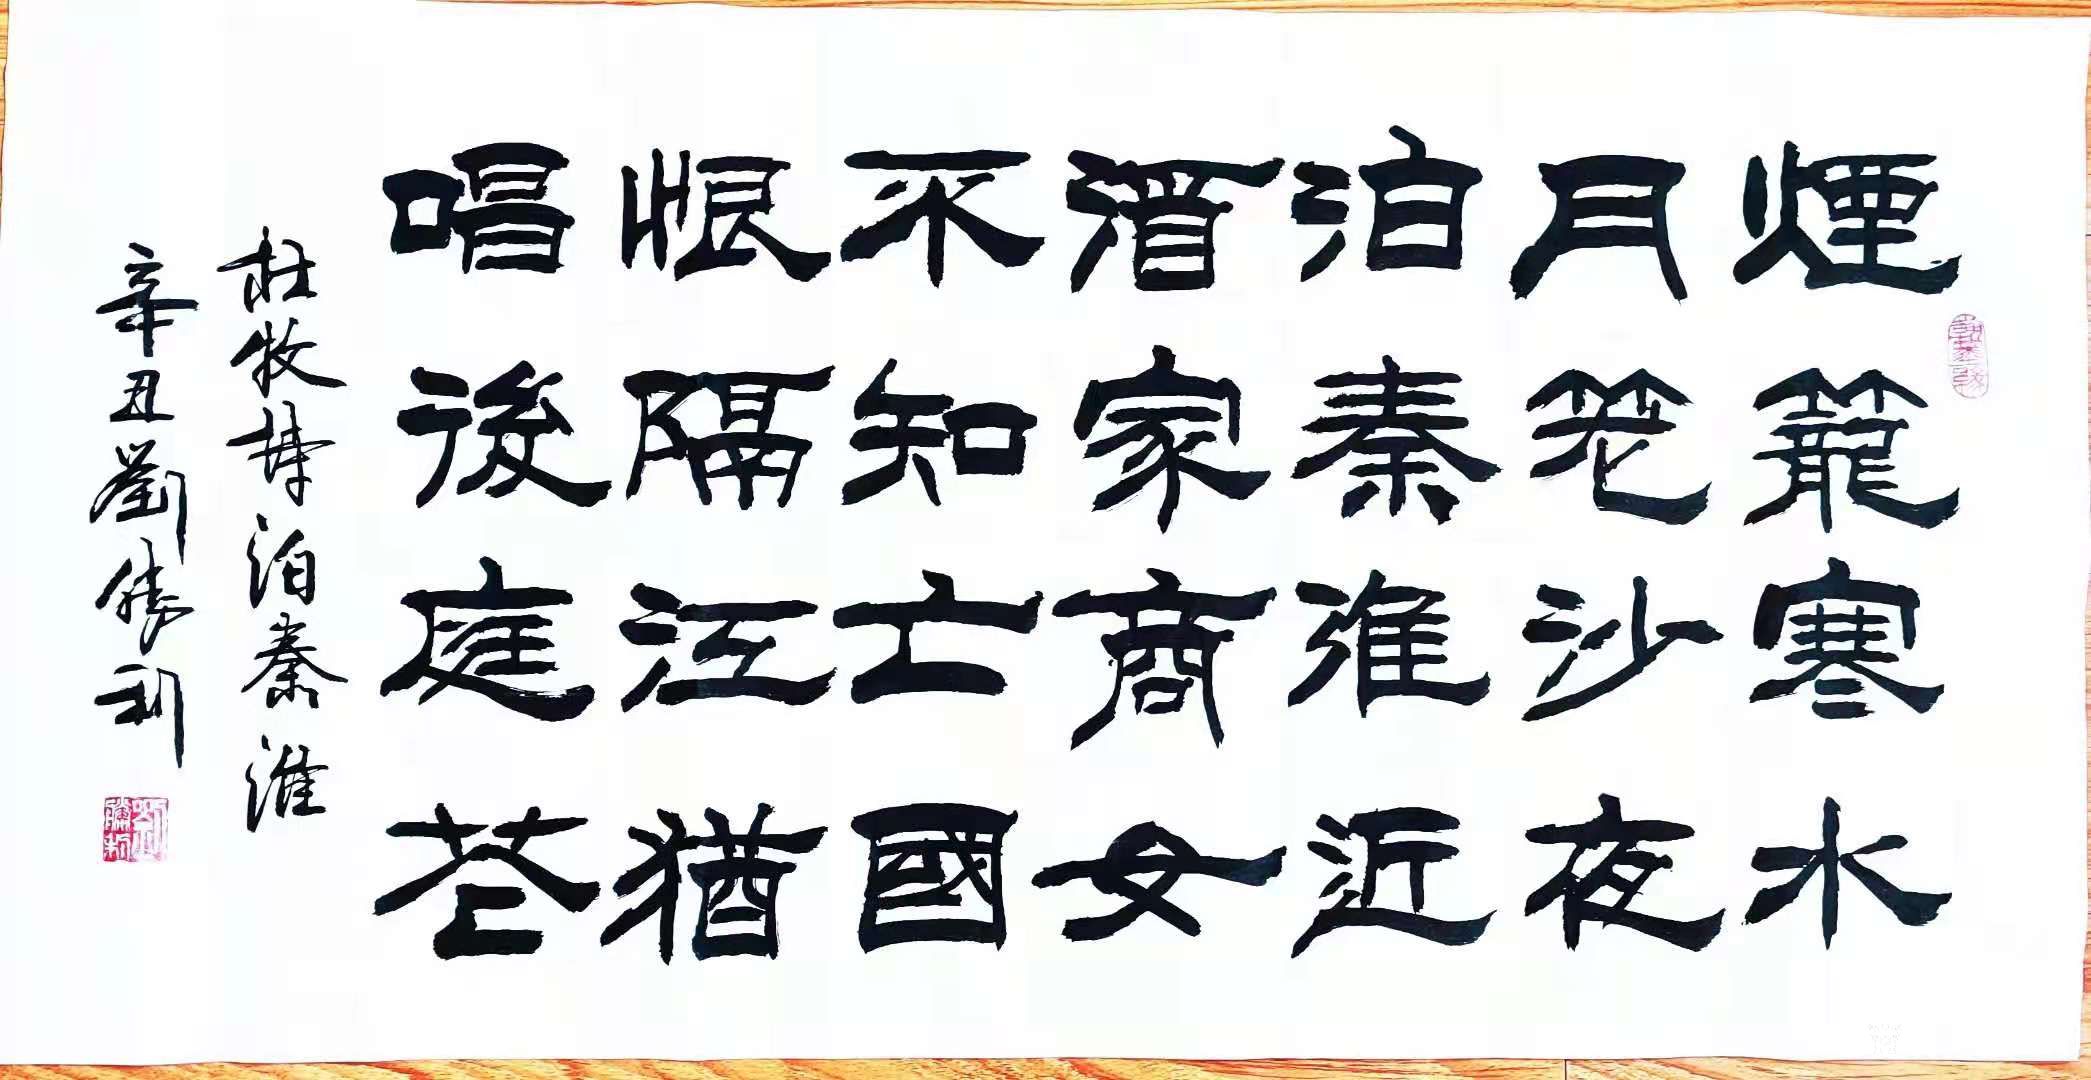 煙籠寒水
月笼沙夜
泊秦淮近
酒家商女
不知亡國
恨隔江猶
唱後庭花
杜牧泊秦淮
辛丑劉勝利
劉勝利